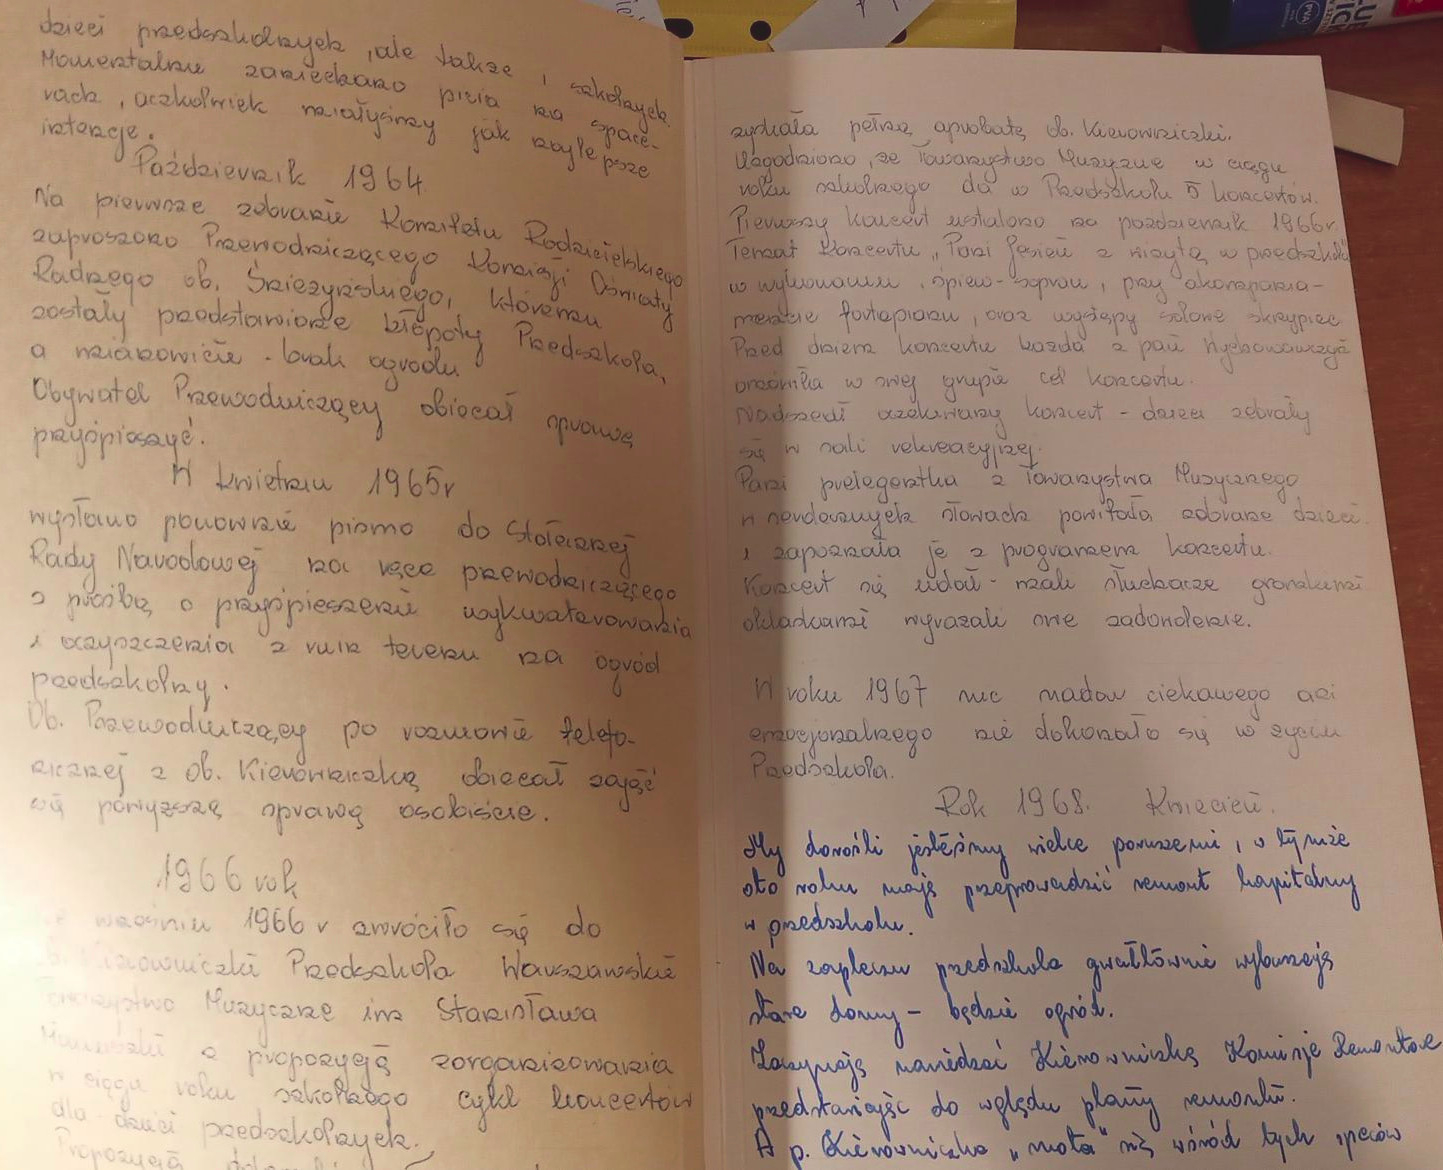 dzieci przedszkolnych, ale także i szkolnych.
Momentalnie zaniechano picia na space-
rach, aczkolwiek miałyśmy jak najlepsze
intencje.
Październik 1964
Na pierwsze zebranie Komitetu Rodzicielskiego
zaproszono Przewodniczącego Komisji Oświaty
Radnego ob. Śnieżyńskiego, któremu
zostały przedstawione kłopoty Przedszkola,
a mianowicie - brak ogrodu.
Obywatel Przewodniczący obiecał sprawę
przyśpieszyć.
W kwietniu 1965 r
wysłano ponownie pismo do Stołecznej
Rady Narodowej na ręce przewodniczącego
z prośbą o przyśpieszenie wykwaterowania
i oczyszczenia z ruin terenu na ogród
przedszkolny.
Ob. Przewodniczący po rozmowie telefo-
nicznej z Ob. Kierowniczką obiecał zająć
się powyższą sprawą osobiście.
1966 rok
wrześniu 1966 r zwróciło się do
Kierowniczki Przedszkola Warszawskie
Towarzystwo Muzyczne im Stanisława
Moniuszki z propozycją zorganizowania
w ciągu roku szkolnego cykl koncertów
dla dzieci przedszkolnych.
Propozycja
zyskała pełną aprobatę ob. Kierowniczki.
Uzgodniono, że Towarzystwo Muzyczne w ciągu
roku szkolnego da w Przedszkolu 5 koncertów.
Pierwszy koncert ustalono na październik 1966 r.
Temat Koncertu „Pani Jesień z wizytą w przedszkolu"
w wykonaniu, śpiew-sopran, przy akompania-
mencie fortepianu, oraz występy solowe skrzypiec
Przed dniem koncertu każda z pań Wychowawczyń
omówiła w swej grupie cel koncertu.
Nadszedł oczekiwany koncert - dzieci zebrały
się w sali rekreacyjnej.
Pani prelegentka z Towarzystwa Muzycznego
w serdecznych słowach powitała zebrane dzieci
i zapoznała je z programem koncertu.
Koncert się udał - mali słuchacze gromkimi
oklaskami wyrażali swe zadowolenie.
W roku 1967 nic nadzw ciekawego ani
emocjonalnego nie dokonało się w życiu
Przedszkola.
Rok 1968. Kwiecień.
My dorośli jesteśmy wielce poruszeni, w tymże
oto roku mają przeprowadzić remont kapitalny
w przedszkolu.
Na zapleczu przedszkola gwałtownie wyburzają
stare domy - będzie ogród.
Zaczynają nawiedzać Kierowniczkę Komisje Remontowe
przedstawiając do wglądu plany remontu.
A p. Kierowniczka „mota" się wśród tych speców